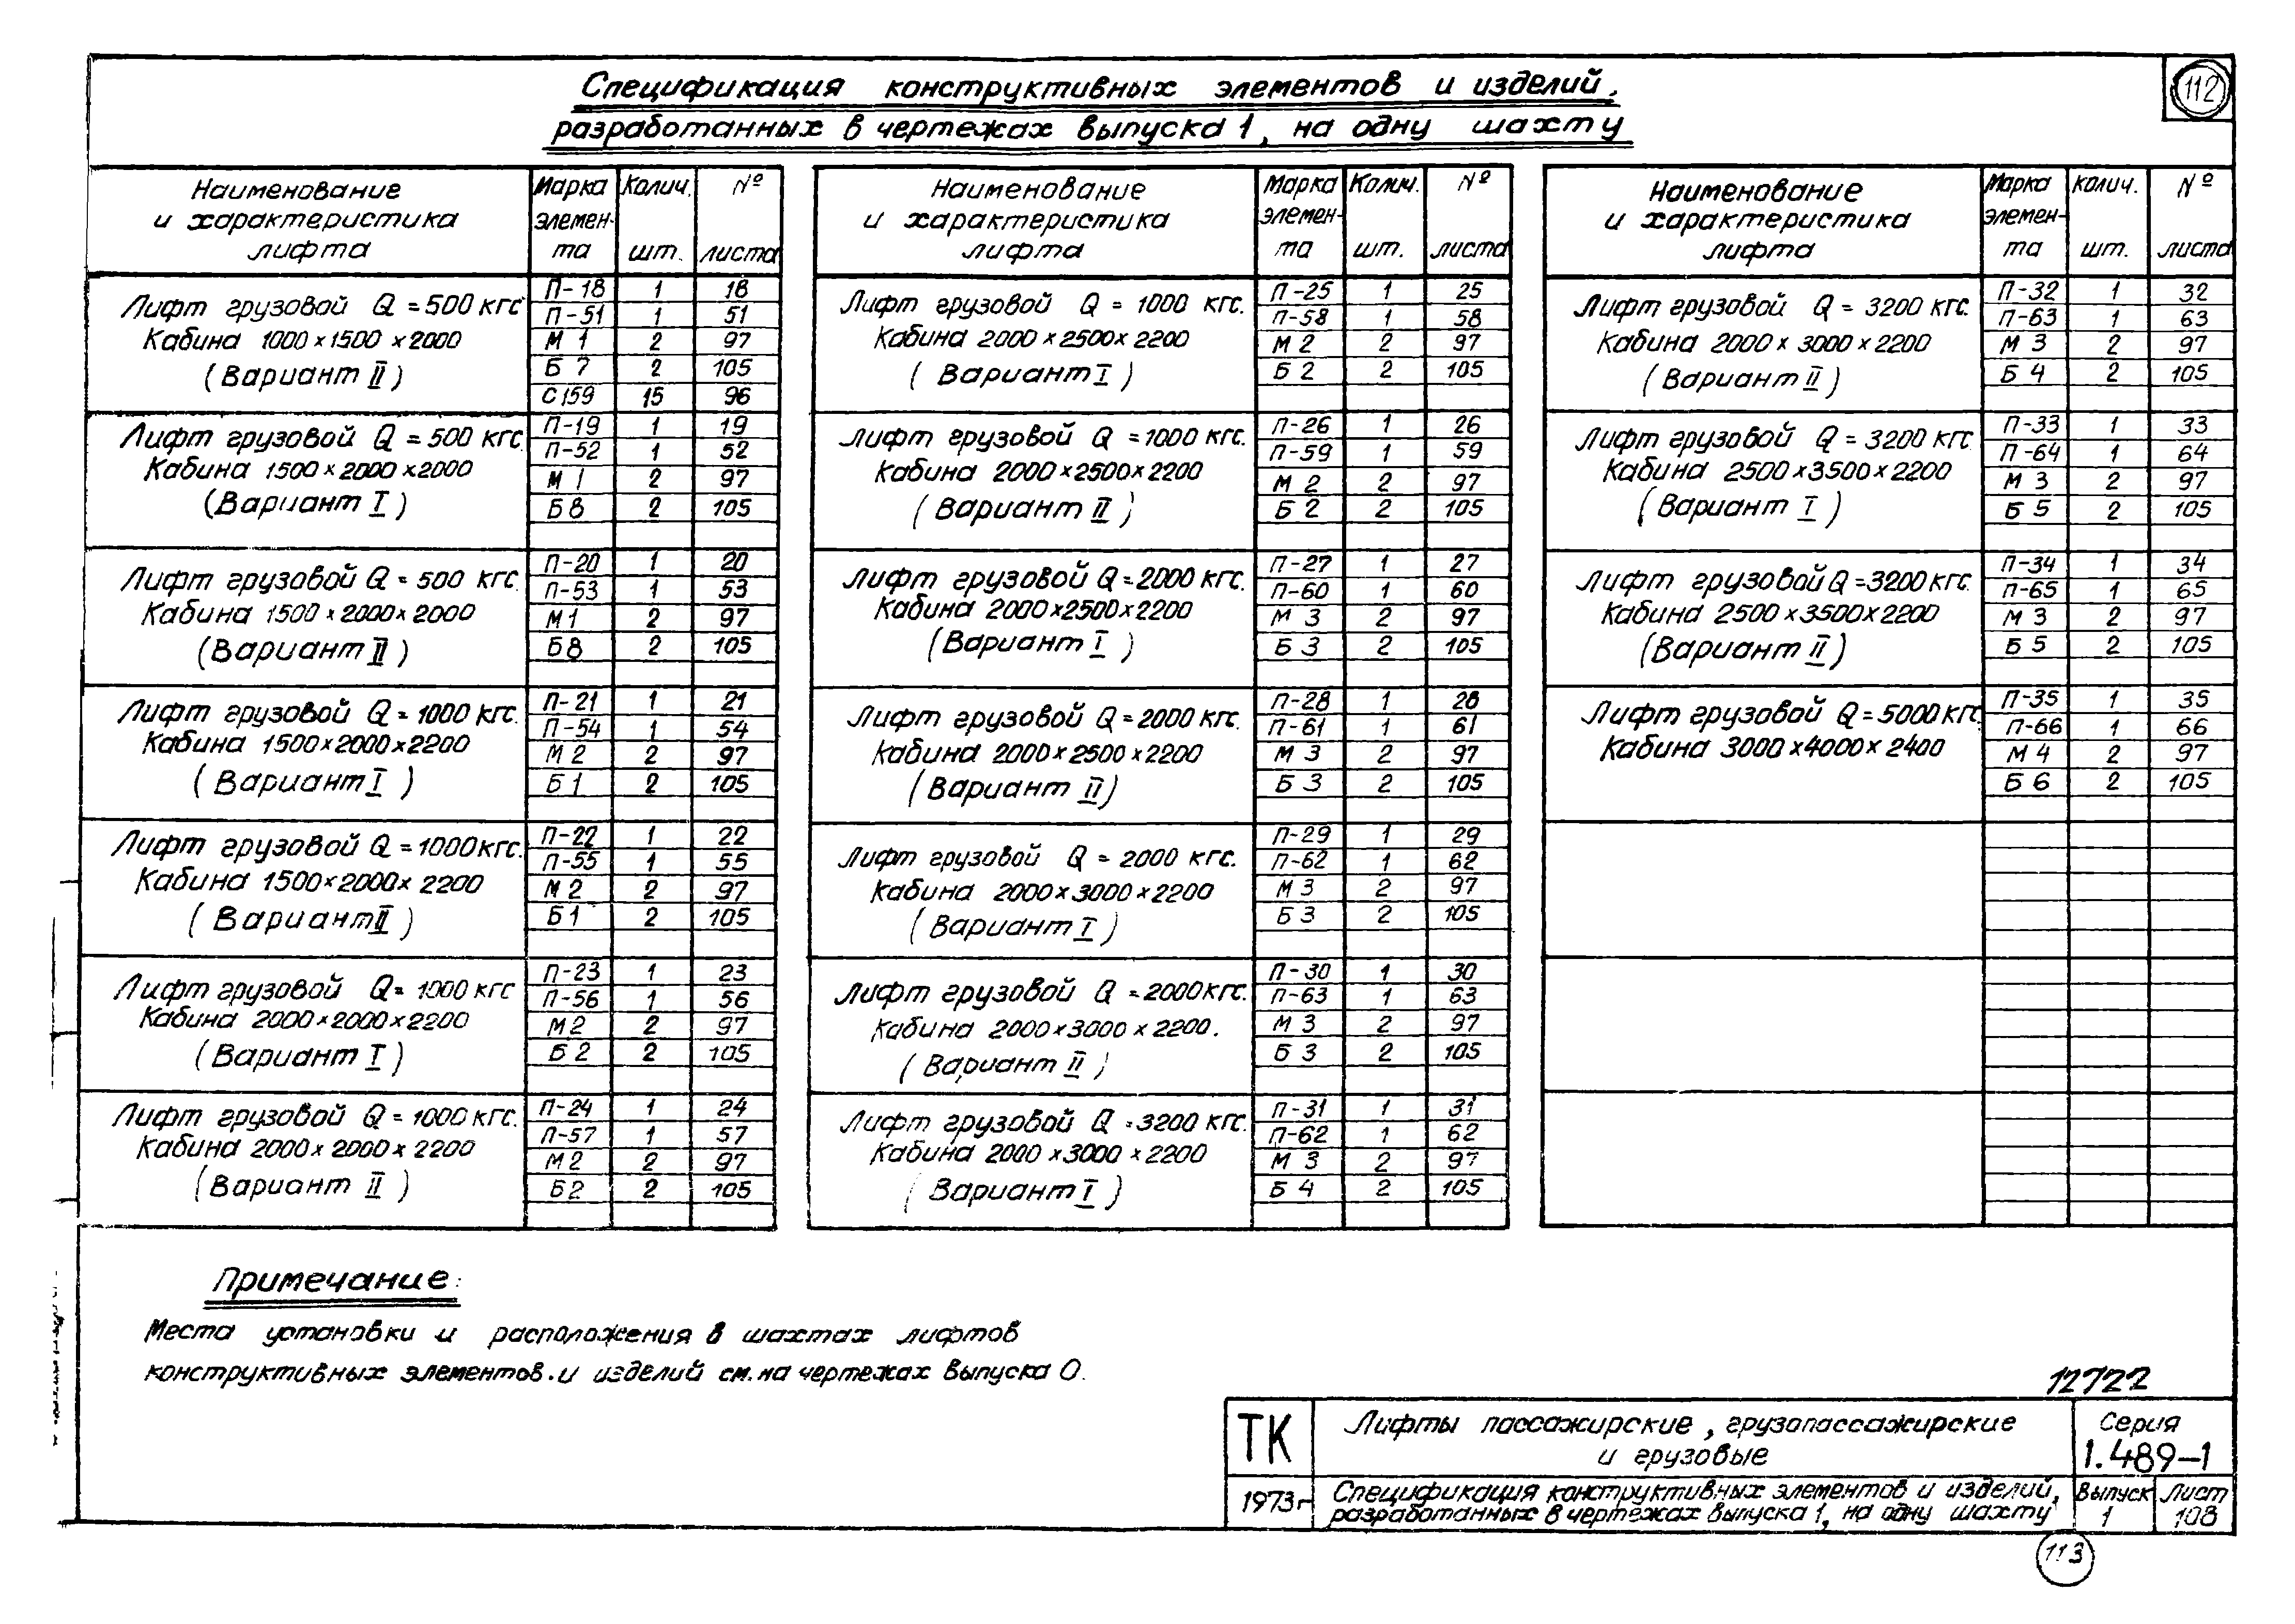 Спецификация конструктивных элементов и изделий,
разработанных в чертежах выпуска 1, на одну шахту
112
Наименование и характеристика лифта
Марка элемен-та
Колич. шт.
№ листа
Лифт грузовой Q = 500 кгс
Кабина 1000 х 1500 х 2000
(Вариант II)
П-18 1 18
П-51 1 51
М 1 2 97
Б 7 2 105
С 159 15 96
Лифт грузовой Q = 500 кгс.
Кабина 1500 х 2000 х 2000
(Вариант I)
П-19 1 19
П-52 1 52
М 1 2 97
Б 8 2 105
Лифт грузовой Q = 500 кгс
Кабина 1500 х 2000 х 2000
(Вариант II)
П-20 1 20
П-53 1 53
М 1 2 97
Б 8 2 105
Лифт грузовой Q = 1000 кгс.
Кабина 1500 х 2000 х 2200
(Вариант I)
П-21 1 21
П-54 1 54
М 2 2 97
Б 1 2 105
Лифт грузовой Q = 1000 кгс.
Кабина 1500 х 2000 х 2200
(Вариант II)
П-22 1 22
П-55 1 55
М 2 2 97
Б 1 2 105
Лифт грузовой Q = 1000 кгс
Кабина 2000 х 2000 х 2200
(Вариант I)
П-23 1 23
П-56 1 56
М 2 2 97
Б 2 2 105
Лифт грузовой Q = 1000 кгс.
Кабина 2000 х 2000 х 2200
(Вариант II)
П-24 1 24
П-57 1 57
М 2 2 97
Б 2 2 105
Наименование и характеристика лифта
Марка элемен-та
Колич. шт.
№ листа
Лифт грузовой Q = 1000 кгс.
Кабина 2000 х 2500 х 2200
(Вариант I)
П-25 1 25
П-58 1 58
М 2 2 97
Б 2 2 105
Лифт грузовой Q = 1000 кгс.
Кабина 2000 х 2500 х 2200
(Вариант II)
П-26 1 26
П-59 1 59
М 2 2 97
Б 2 2 105
Лифт грузовой Q = 2000 кгс.
Кабина 2000 х 2500 х 2200
(Вариант I)
П-27 1 27
П-60 1 60
М 3 2 97
Б 3 2 105
Лифт грузовой Q = 2000 кгс.
Кабина 2000 х 2500 х 2200
(Вариант II)
П-28 1 28
П-61 1 61
М 3 2 97
Б 3 2 105
Лифт грузовой Q = 2000 кгс.
Кабина 2000 х 3000 х 2200
(Вариант I)
П-29 1 29
П-62 1 62
М 3 2 97
Б 3 2 105
Лифт грузовой Q = 2000 кгс.
Кабина 2000 х 3000 х 2200.
(Вариант II)
П-30 1 30
П-63 1 63
М 3 2 97
Б 3 2 105
Лифт грузовой Q = 3200 кгс.
Кабина 2000 х 3000 х 2200
(Вариант I)
П-31 1 31
П-62 1 62
М 3 2 97
Б 4 2 105
Наименование и характеристика лифта
Марка элемен-та
Колич. шт.
№ листа
Лифт грузовой Q = 3200 кгс.
Кабина 2000 х 3000 х 2200
(Вариант II)
П-32 1 32
П-63 1 63
М 3 2 97
Б 4 2 105
Лифт грузовой Q = 3200 кгс
Кабина 2500 х 3500 х 2200
(Вариант I)
П-33 1 33
П-64 1 64
М 3 2 97
Б 5 2 105
Лифт грузовой Q = 3200 кгс.
Кабина 2500 х 3500 х 2200
(Вариант II)
П-34 1 34
П-65 1 65
М 3 2 97
Б 5 2 105
Лифт грузовой Q = 5000 кгс
Кабина 3000 х 4000 х 2400
П-35 1 35
П-66 1 66
М 4 2 97
Б 6 2 105
Примечание:
Места установки и расположения в шахтах лифтов
конструктивных элементов и изделий см. на чертежах выпуска 0.
12722
ТК
Лифты пассажирские, грузопассажирские
и грузовые
Серия
1.489-1
1973 г
Спецификация конструктивных элементов и изделий,
разработанных в чертежах выпуска 1, на одну шахту
Выпуск
1
Лист
108
113